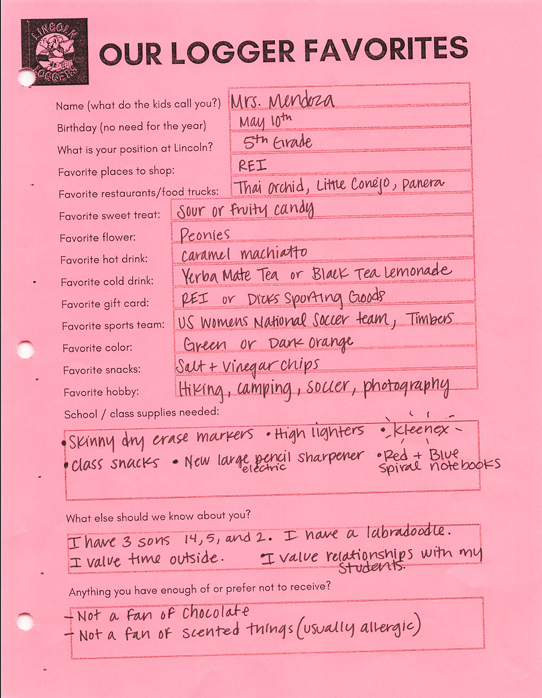 LINCOLN
LOGGERS
OUR LOGGER FAVORITES
Name (what do the kids call you?) Mrs. Mendoza
Birthday (no need for the year) May 10th
What is your position at Lincoln? 5th Grade
Favorite places to shop: REI
Favorite restaurants/food trucks: Thai Orchid, Little Conejo, Panera
Favorite sweet treat: Sour or fruity candy
Favorite flower: Peonies
Favorite hot drink: caramel machiatto
Favorite cold drink: Yerba Mate Tea or Black Tea Lemonade
Favorite gift card: REI or Dicks Sporting Goods
Favorite sports team: US Womens National Soccer team, Timbers
Favorite color: Green or Dark Orange
Favorite snacks: Salt + Vinegar chips
Favorite hobby: Hiking, camping, soccer, photography
School / class supplies needed:
• Skinny dry erase markers • High lighters • Kleenex
• class snacks • New large pencil sharpener • Red + Blue
electric Spiral notebooks
What else should we know about you?
I have 3 sons 14, 5, and 2. I have a labradoodle.
I value time outside. *I value relationships with my
students.
Anything you have enough of or prefer not to receive?
- Not a fan of chocolate
- Not a fan of scented things (usually allergic)